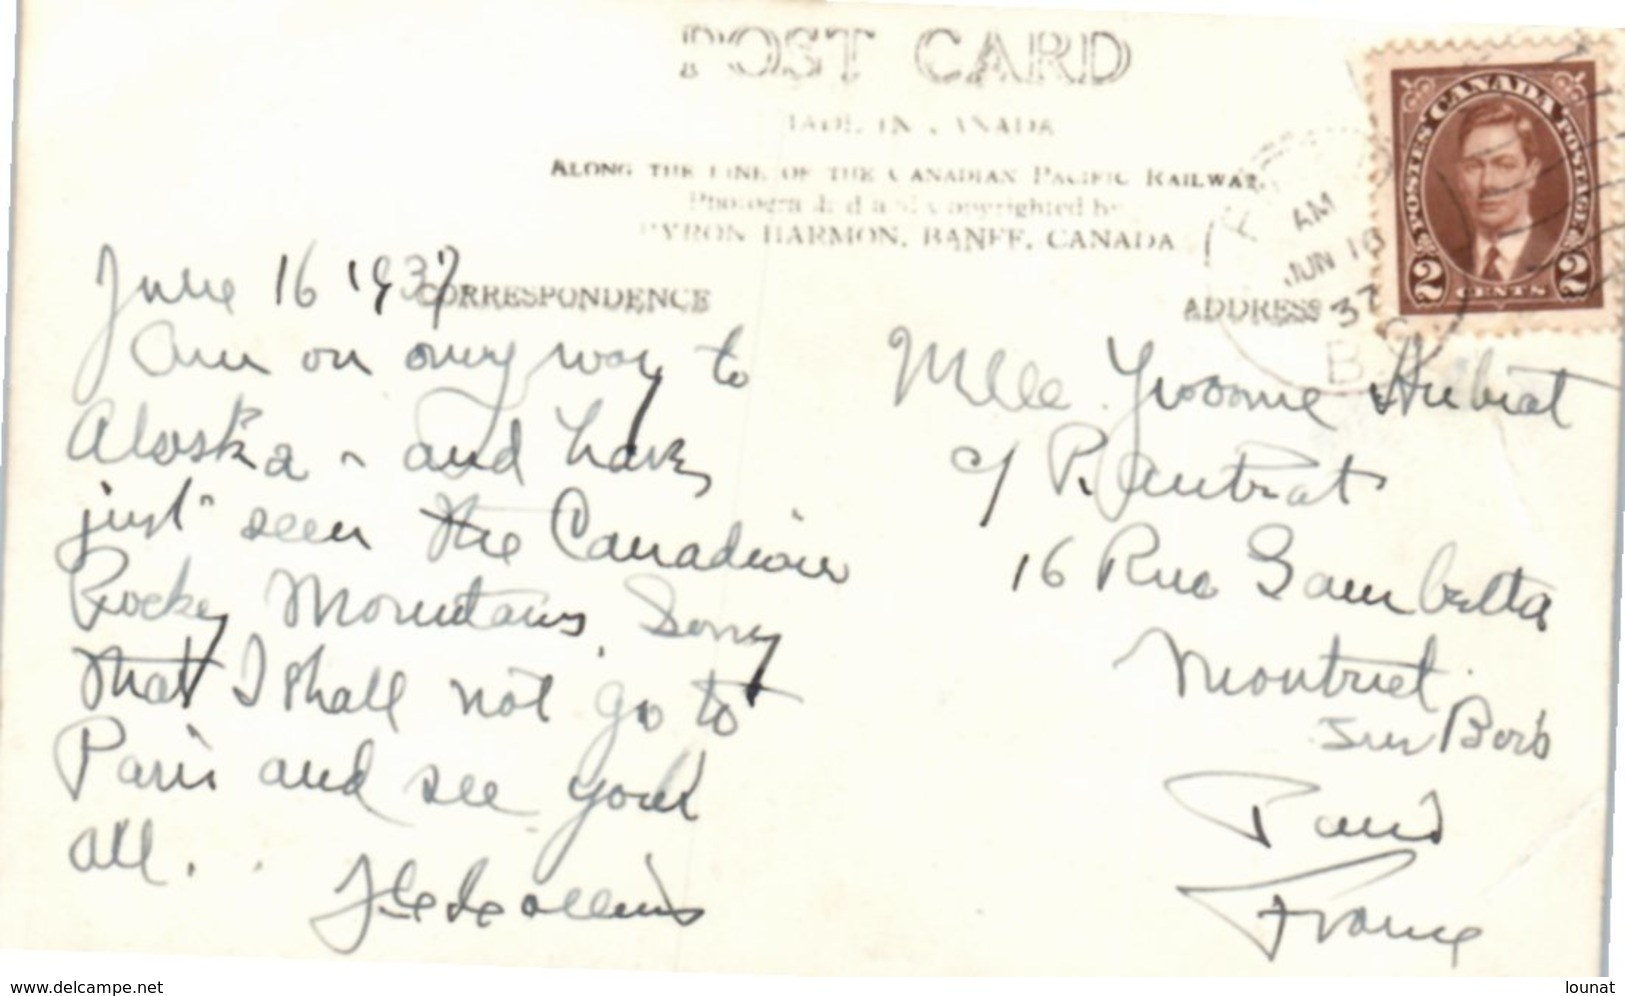 POST CARD
MADE IN CANADA
ALONG THE LINE OF THE CANADIAN PACIFIC RAILWAY.
Photographed and Copyrighted by
BYRON HARMON, BANFF, CANADA
CORRESPONDENCE
ADDRESS
POSTES CANADA POSTAGE
2 CENTS 2
AM
JUN 16
37
B.C.
June 16 1937
Am on my way to
Alaska - and have
just seen the Canadian
Rocky Mountains. Sorry
that I shall not go to
Paris and see you
all.
Mlle. Yvonne
c/
16 Rue Gambetta
Montreuil
sur Bois
Paris
France
www.delcampe.net
lounat